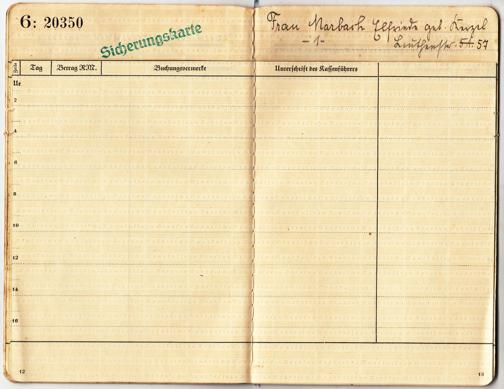 6: 20350
Sicherungskarte
Frau Marbach Elfriede geb.
- 1 - Leuthenstr. 51. 57
Tag Betrag R.M. Buchungsvermerke Unterschrift des Kassenführers
Nr
2
4
6
8
10
12
14
16
12 13